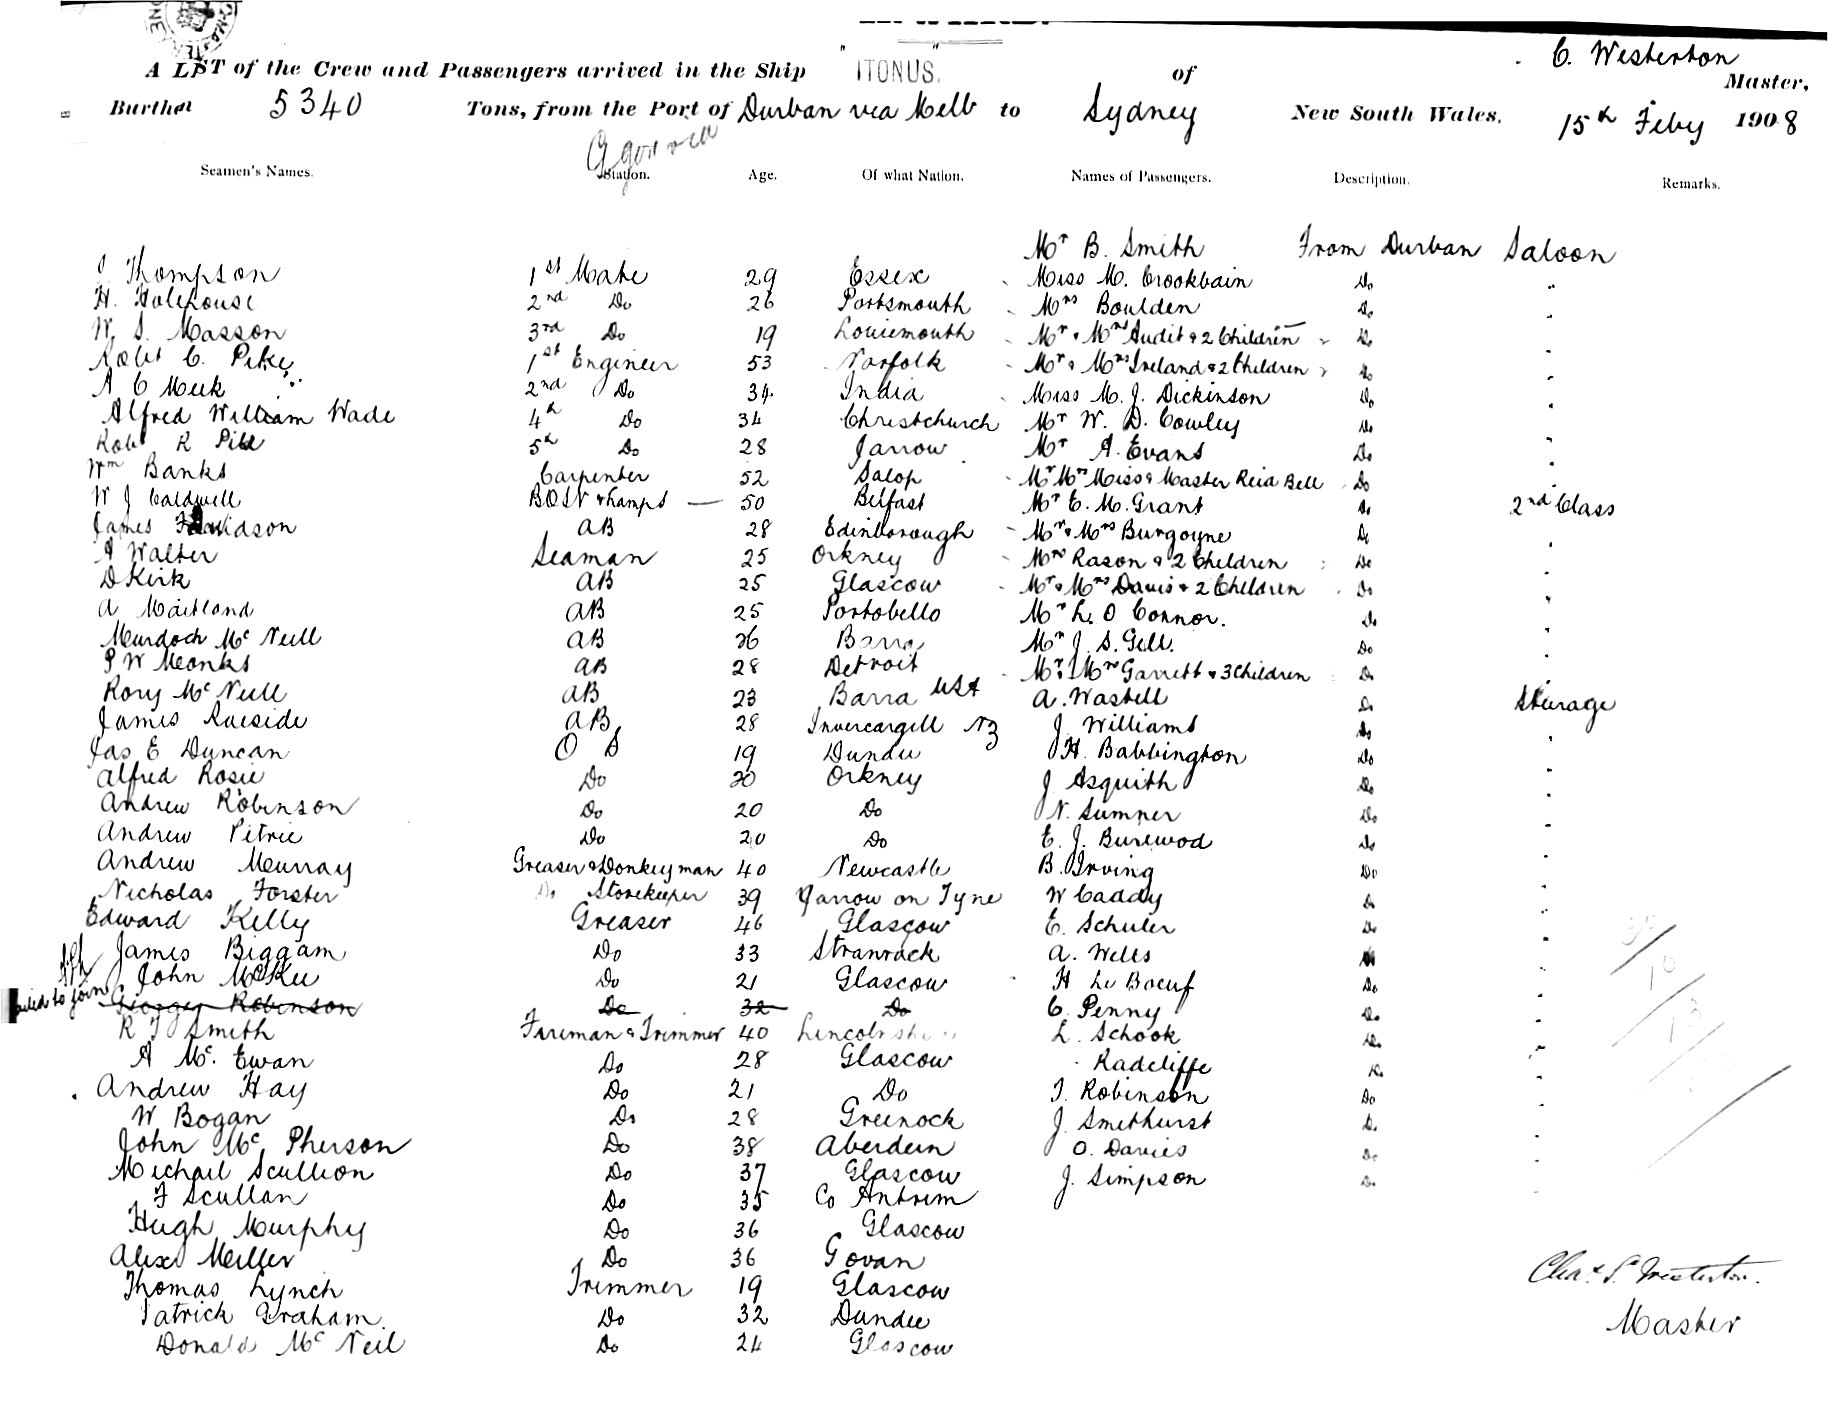 INWARD.
A LIST of the Crew and Passengers arrived in the Ship "ITONUS." of C. Westerton Master,
Burthen 5340 Tons, from the Port of Durban via Melb to Sydney New South Wales, 15th Feby 1908
Seamen's Names. Station. Age. Of what Nation. Names of Passengers. Description. Remarks.
Mr B. Smith From Durban Saloon
J Thompson 1st Mate 29 Essex Miss M. Crookbain Do "
H. Holehouse 2nd Do 26 Portsmouth Mrs Boulden Do "
W. S. Masson 3rd Do 19 Mr & Mrs Audit & 2 Children Do "
Robt C. Pike 1st Engineer 53 Norfolk Mr & Mrs Ireland & 2 Children Do "
A C Meek 2nd Do 34 India Miss M. J. Dickinson Do "
Alfred William Wade 4th Do 34 Christchurch Mr W. D. Cowley Do "
Robt R 5th Do 28 Jarrow Mr A. Evans Do "
Wm Banks Carpenter 52 Salop Mr Mrs Miss & Master Reid Bell Do "
W J Caldwell BOSN & Lamps — 50 Belfast Mr E. M. Grant Do 2nd Class
James Davidson AB 28 Edinborough Mr & Mrs Burgoyne Do "
A Walter Seaman 25 Orkney Mrs Rason & 2 Children Do "
D Kirk AB 25 Glascow Mr & Mrs Davis & 2 Children Do "
A Maitland AB 25 Portobello Mr L. O Connor. Do "
Murdoch Mc Neill AB 26 Barra Mr J. S. Gell. Do "
P W Meonks AB 28 Detroit USA Mr & Mrs Garrett & 3 Children Do "
Rory Mc Neill AB 23 Barra A. Wastell Do Sturage
James Raeside AB 28 Invercargill NZ J. Williams Do "
Jas E Duncan O S 19 Dundee H. Babbington Do "
Alfred Rosie Do 20 Orkney J Asquith Do "
Andrew Robinson Do 20 Do N. Sumner Do "
Andrew Petrie Do 20 Do E. J. Burewod Do "
Andrew Murray Greaser & Donkeyman 40 Newcastle B. Irving Do "
Nicholas Forster Do Storekeeper 39 Jarrow on Tyne W Caddy Do "
Edward Kelly Greaser 46 Glascow E. Schuler Do "
James Biggam Do 33 Stranrack A. Wells Do "
John McKee Do 21 Glascow H Le Boeuf Do "
failed to join George Robinson Do 32 Do C. Penny Do "
R J Smith Fireman & Trimmer 40 Lincolnshire L. Schook Do "
A Mc. Ewan Do 28 Glascow Radcliffe Do "
Andrew Hay Do 21 Do J. Robinson Do "
W Bogan Do 28 Greenock J. Smethurst Do "
John Mc Pherson Do 38 Aberdeen O. Davies Do "
Michail Scullion Do 37 Glascow J. Simpson Do "
F Scullan Do 35 Co Antrim
Hugh Murphy Do 36 Glascow
Alex Meller Do 36 Govan
Thomas Lynch Trimmer 19 Glascow
Patrick Graham. Do 32 Dundee
Donald Mc Neil Do 24 Glascow
Chas. S. Westerton.
Master